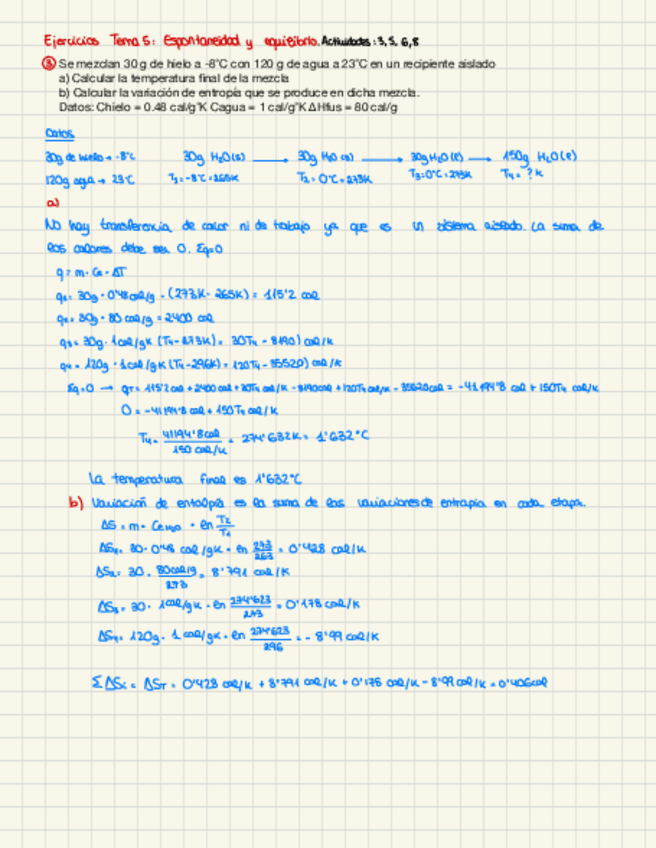 Ejercicios Tema 5: Espontaneidad y equilibrio. Actividades: 3, 5, 6, 8
③ Se mezclan 30 g de hielo a -8°C con 120 g de agua a 23°C en un recipiente aislado
a) Calcular la temperatura final de la mezcla
b) Calcular la variación de entropía que se produce en dicha mezcla.
Datos: Chielo = 0.48 cal/g°K Cagua = 1 cal/g°K ΔHfus = 80 cal/g
Datos
30g de hielo → -8°C 30g H₂O(s) → 30g H₂O (s) → 30g H₂O(l) → 150g H₂O(l)
120g agua → 23°C T₁ = -8°C = 265K T₂ = 0°C = 273K T₃ = 0°C = 273K T₄ = ? K
a)
No hay transferencia de calor ni de trabajo ya que es un sistema aislado. La suma de
los calores debe ser 0. Σq=0
q = m · Ce · ΔT
q₁ = 30g · 0'48 cal/g · (273K - 265K) = 115'2 cal
q₂ = 30g · 80 cal/g = 2400 cal
q₃ = 30g · 1cal/gK (T₄ - 273K) = 30T₄ - 8190) cal/K
q₄ = 120g · 1cal/gK (T₄ - 296K) = 120T₄ - 35520) cal/K
Σq=0 → qT = 115'2 cal + 2400 cal + 30T₄ cal/K - 8190cal + 120T₄ cal/K - 35520cal = -41194'8 cal + 150T₄ cal/K
0 = -41194'8 cal + 150T₄ cal/K
T₄ = 41194'8cal / 150 cal/K = 274'632K = 1'632°C
La temperatura final es 1'632°C
b) Variación de entalpía es la suma de las variaciones de entropía en cada etapa.
ΔS = m · Ce H₂O · ln T₂/T₁
ΔS₁ = 30 · 0'48 cal/gK · ln 273/265 = 0'428 cal/K
ΔS₂ = 30 · 80cal/g / 273 = 8'791 cal/K
ΔS₃ = 30 · 1cal/gK · ln 274'623/273 = 0'178 cal/K
ΔS₄ = 120g · 1 cal/gK · ln 274'623/296 = - 8'99 cal/K
ΣΔSᵢ = ΔST = 0'428 cal/K + 8'791 cal/K + 0'178 cal/K - 8'99 cal/K = 0'406cal